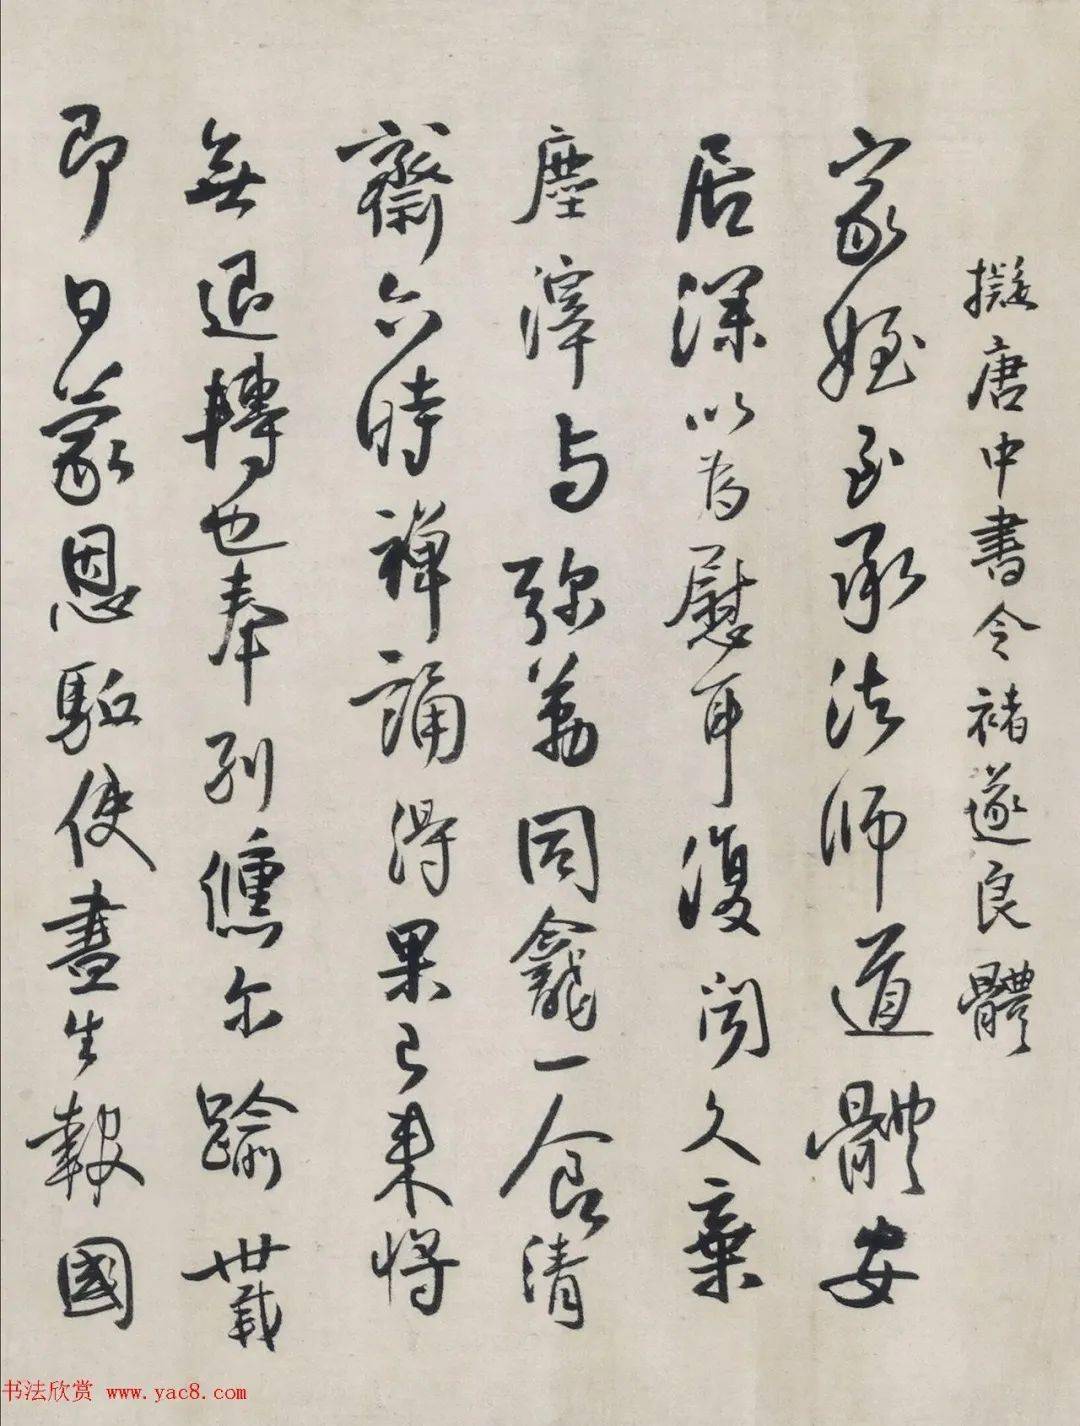 擬唐中書令褚遂良體
家姪至承法師道體安
居深以為慰耳復聞久棄
塵滓与弥勒同龕一食清
齋六時禅誦得果已来將
無退轉也奉別儵尔踰卅載
即日蒙恩駈使盡生報國
书法欣赏 www.yac8.com